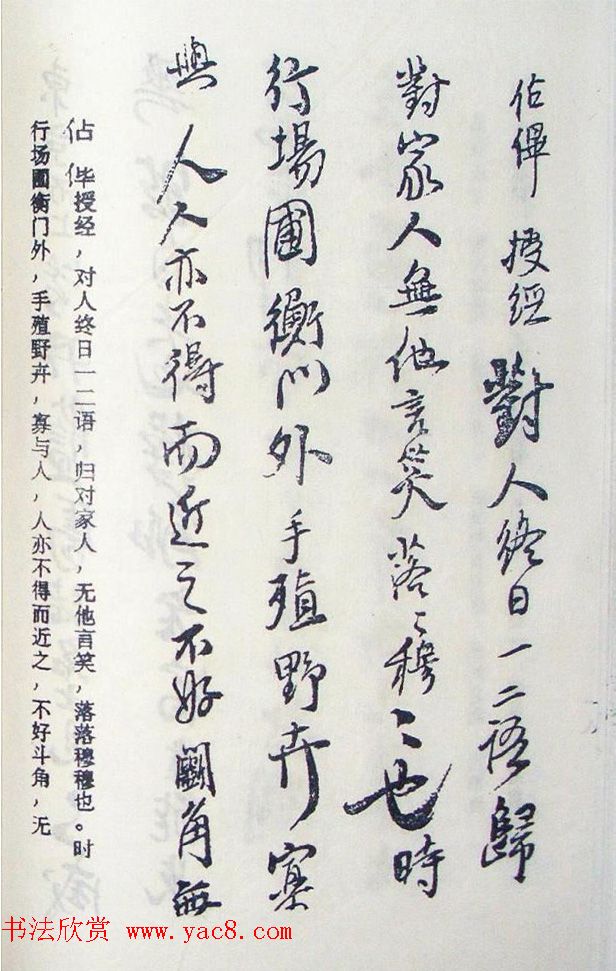 佔僤授經對人終日一二语歸
對家人無他言笑落〻穆〻也時
行場圃衡门外手殖野卉寡
與人人亦不得而近之不好鬭角無
佔毕授经，对人终日一二语，归对家人，无他言笑，落落穆穆也。时
行场圃衡门外，手殖野卉，寡与人，人亦不得而近之，不好斗角，无
书法欣赏 www.yac8.com